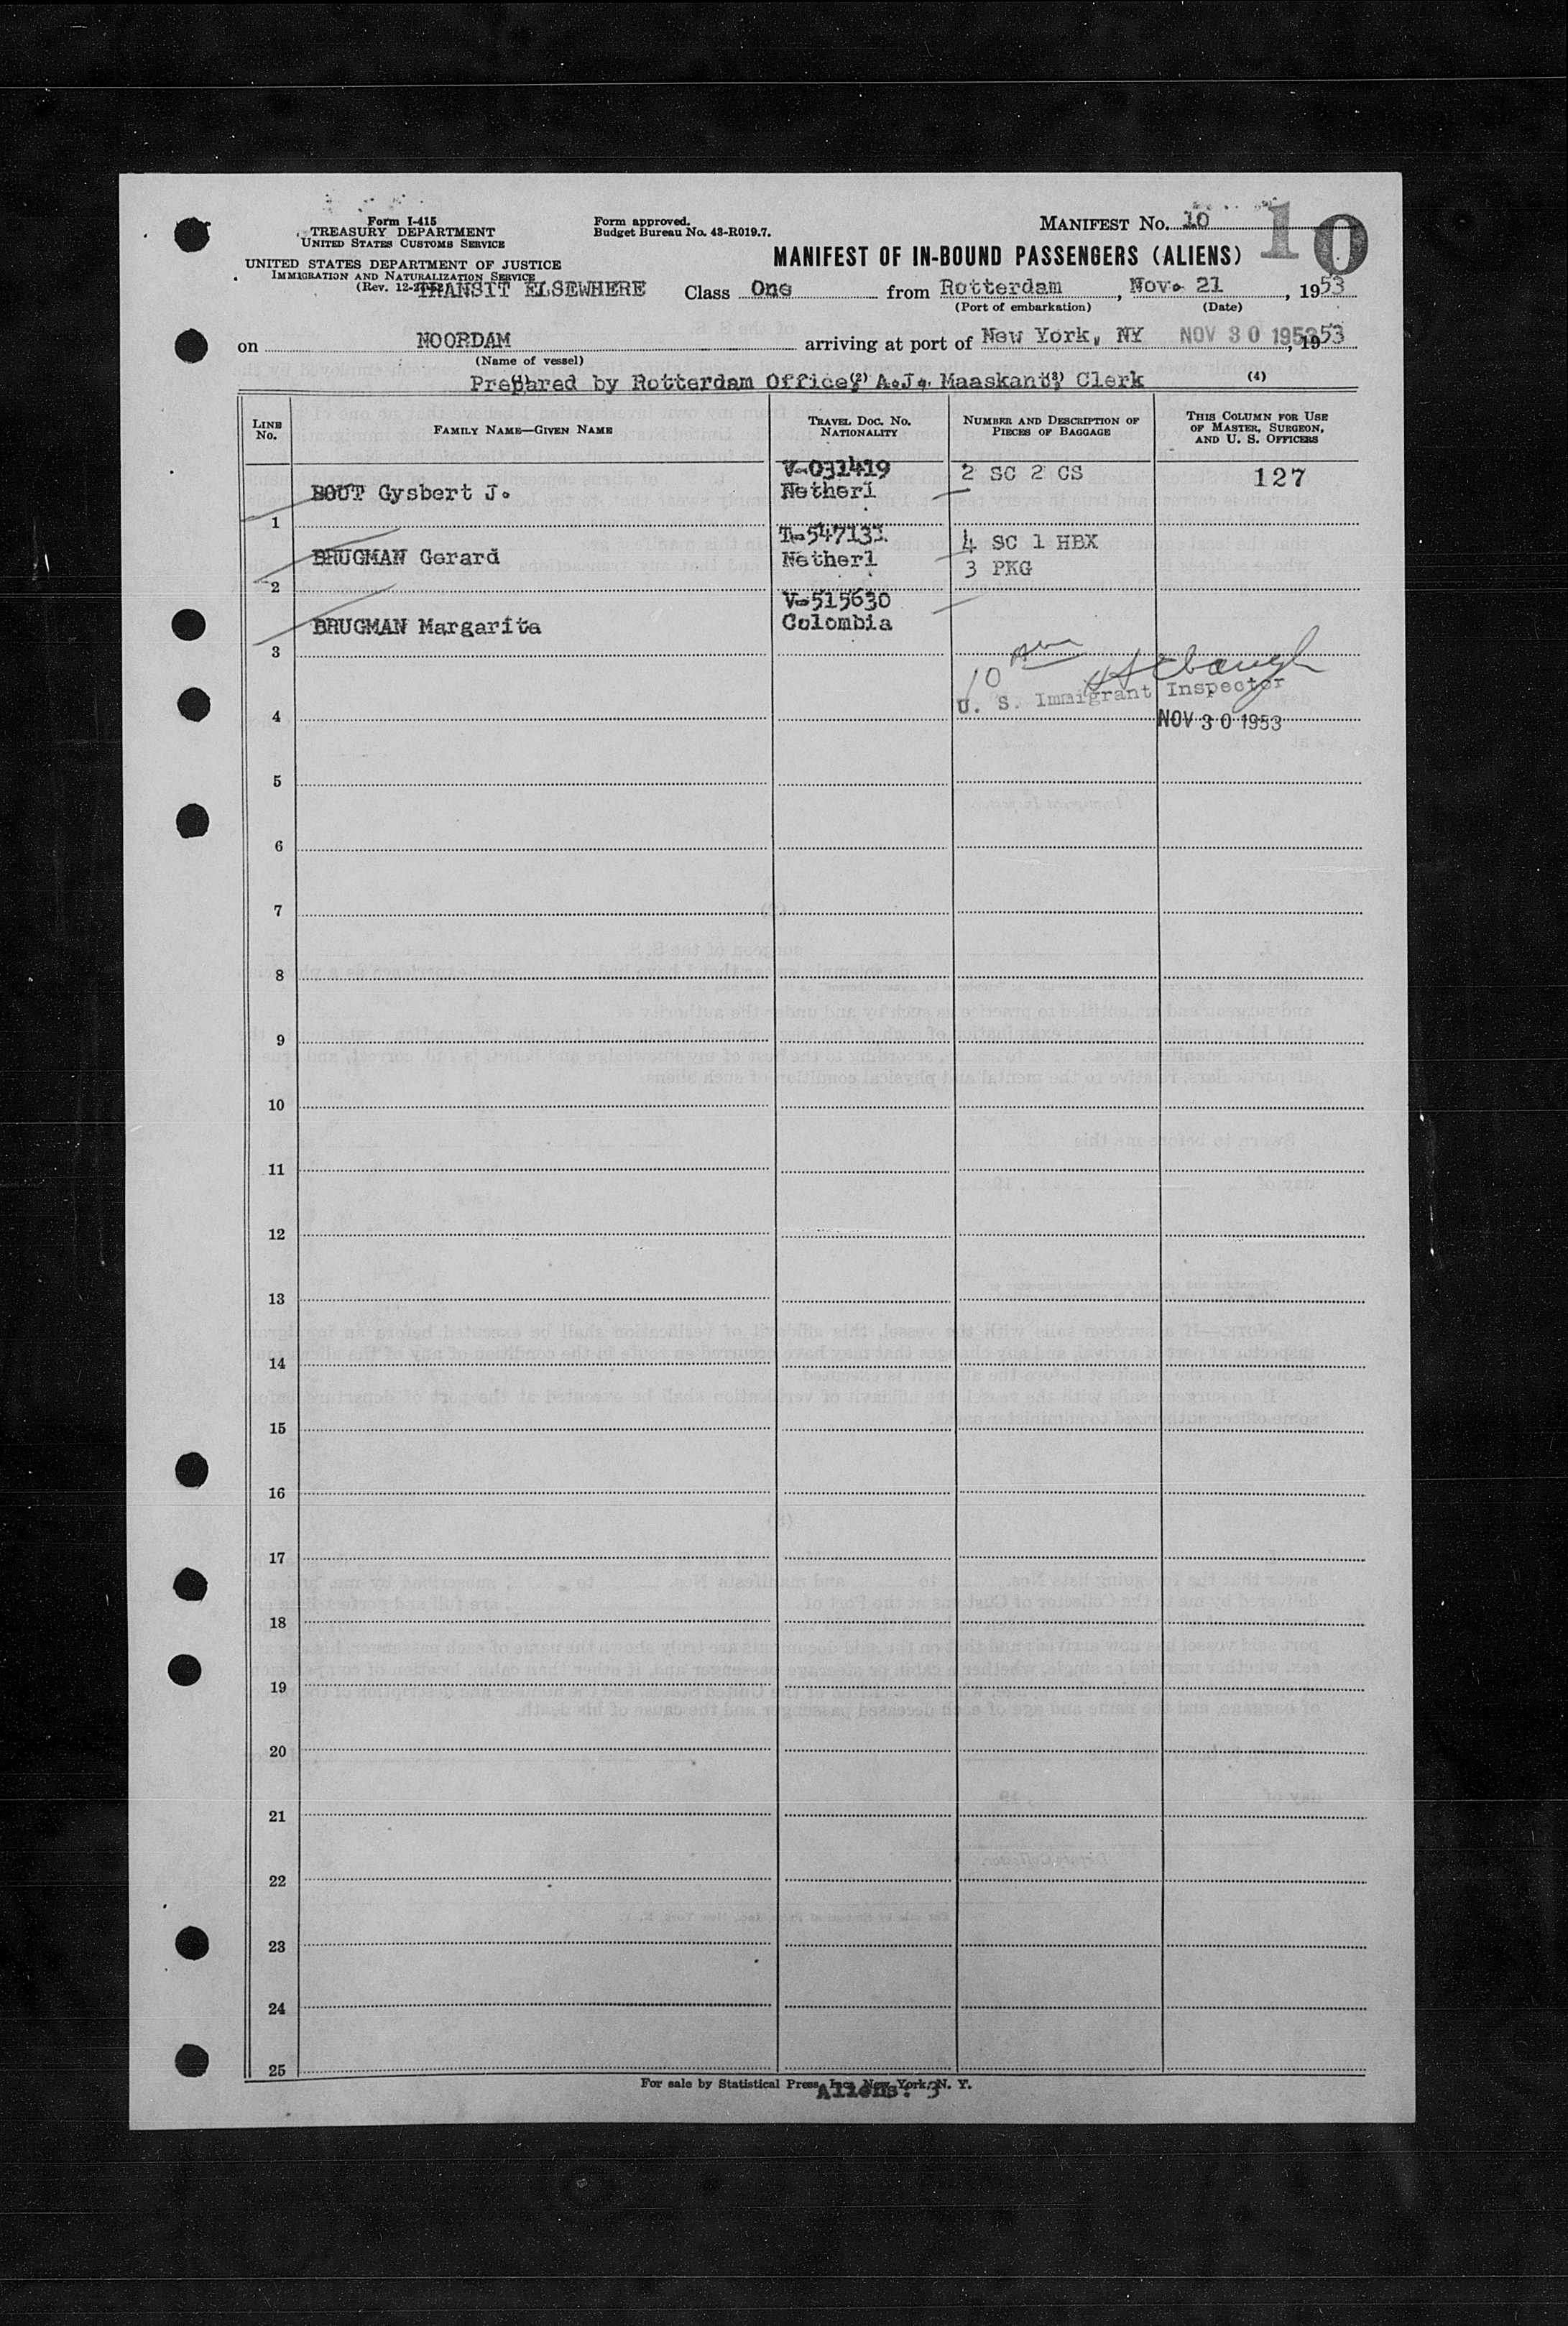 Form I-415
TREASURY DEPARTMENT
UNITED STATES CUSTOMS SERVICE
UNITED STATES DEPARTMENT OF JUSTICE
IMMIGRATION AND NATURALIZATION SERVICE
(Rev. 12-
Form approved.
Budget Bureau No. 43-R019.7.
MANIFEST No. 10
10
MANIFEST OF IN-BOUND PASSENGERS (ALIENS)
TRANSIT ELSEWHERE Class One from Rotterdam, Nov. 21, 1953
(Port of embarkation) (Date)
on NOORDAM arriving at port of New York, NY NOV 30 1953, 1953
(Name of vessel)
Prepared by Rotterdam Office, (2) A.J. Maaskant, (3) Clerk (4)
LINE No.
FAMILY NAME—GIVEN NAME
TRAVEL DOC. NO. NATIONALITY
NUMBER AND DESCRIPTION OF PIECES OF BAGGAGE
THIS COLUMN FOR USE OF MASTER, SURGEON, AND U. S. OFFICERS
V-031419 2 SC 2 CS 127
BOUT Gysbert J. Netherl
1
T-547131
BRUGMAN Gerard Netherl 4 SC 1 HBX
2 3 PKG
V-515630
BRUGMAN Margarita Colombia
3
10
U. S. Immigrant Inspector
4 NOV 30 1953
5
6
7
8
9
10
11
12
13
14
15
16
17
18
19
20
21
22
23
24
25
For sale by Statistical Press, Inc., New York, N. Y.
Aliens: 3